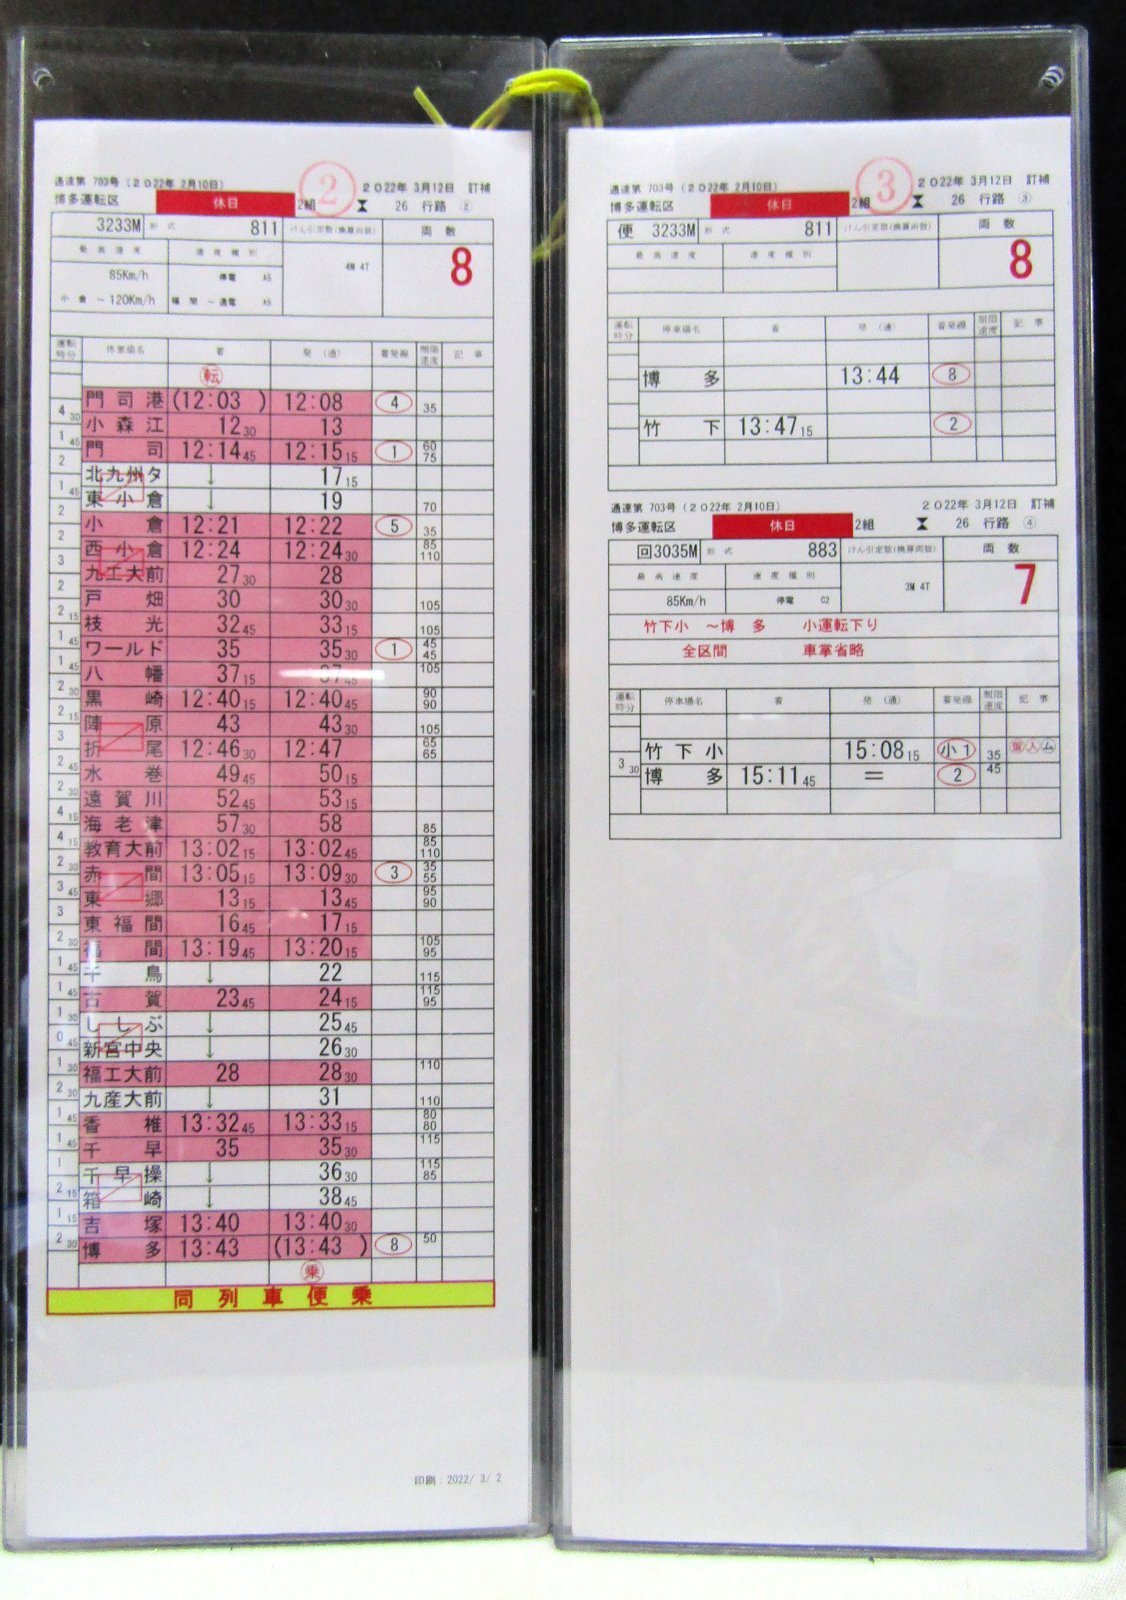 ②
通達第 703号 (2022年 2月10日) 2022年 3月12日 訂補
博多運転区 休日 2組 26 行路 ②
3233M 形式 811 けん引定数(換算両数) 両数
最高速度 速度種別 4M 4T 8
85Km/h 停電 A5
小倉 ～120Km/h 福間 ～ 通電 A5
運転時分 停車場名 着 発 (通) 着発線 制限速度 記事
転
門司港 (12:03 ) 12:08 4 35
4 30
小森江 12 30 13
1 45
門司 12:14 45 12:15 15 1 60 75
2
北九州タ ↓ 17 15
1 45
東小倉 ↓ 19 70
2
小倉 12:21 12:22 5 35
2
西小倉 12:24 12:24 30 85 110
3
九工大前 27 30 28
2
戸畑 30 30 30 105
2 15
枝光 32 45 33 15 105
1 45
ワールド 35 35 30 1 45 45
1 45
八幡 37 15 37 45 105
2 30
黒崎 12:40 15 12:40 45 90 90
2 15
陣原 43 43 30
3
折尾 12:46 30 12:47 65 65
2 45
水巻 49 45 50 15
2 30
遠賀川 52 45 53 15
4 15
海老津 57 30 58 85
4 15
教育大前 13:02 15 13:02 45 85 110
2 30
赤間 13:05 15 13:09 30 3 35 55
3 45
東郷 13 15 13 45 95 90
3
東福間 16 45 17 15
2 30
福間 13:19 45 13:20 15 105 95
1 45
千鳥 ↓ 22 115
1 45
古賀 23 45 24 15 115 95
1 30
ししぶ ↓ 25 45
0 45
新宮中央 ↓ 26 30
1 30
福工大前 28 28 30 110
2 30
九産大前 ↓ 31 110
1 45
香椎 13:32 45 13:33 15 80 80
1 45
千早 35 35 30 115
1
千早操 ↓ 36 30 115 85
2 15
箱崎 ↓ 38 45
1 15
吉塚 13:40 13:40 30
2 30
博多 13:43 (13:43 ) 8 50
乗
同列車便乗
印刷：2022/ 3/ 2
③
通達第 703号 (2022年 2月10日) 2022年 3月12日 訂補
博多運転区 休日 2組 26 行路 ③
便 3233M 形式 811 けん引定数(換算両数) 両数
最高速度 速度種別 8
運転時分 停車場名 着 発 (通) 着発線 制限速度 記事
博多 13:44 8
竹下 13:47 15 2
通達第 703号 (2022年 2月10日) 2022年 3月12日 訂補
博多運転区 休日 2組 26 行路 ④
回3035M 形式 883 けん引定数(換算両数) 両数
最高速度 速度種別 3M 4T 7
85Km/h 停電 C2
竹下小 ～博多 小運転下り
全区間 車掌省略
運転時分 停車場名 着 発 (通) 着発線 制限速度 記事
竹下小 15:08 15 小1 35 入 ム
3 30
博多 15:11 45 ＝ 2 45